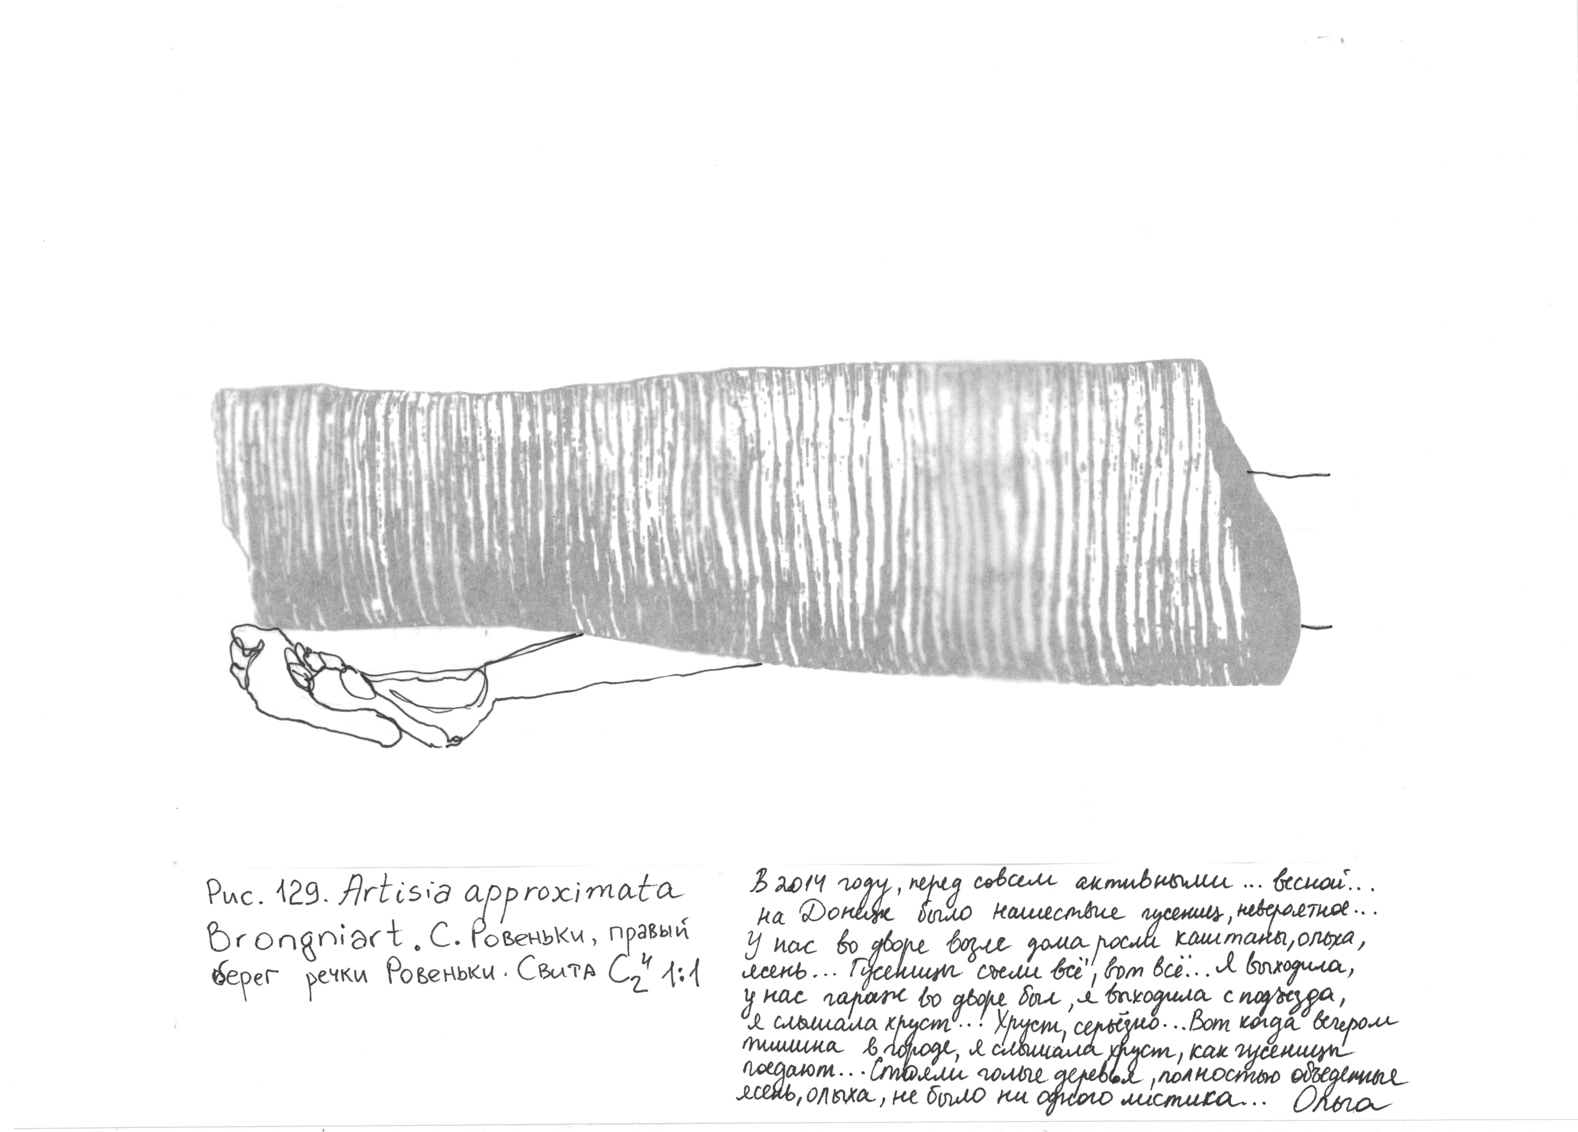 Рис. 129. Artisia approximata
Brongniart. С. Ровеньки, правый
берег речки Ровеньки. Свита C₂⁴ 1:1
В 2014 году, перед совсем активными ... весной...
на Донецк было нашествие гусениц, невероятное...
У нас во дворе возле дома росли каштаны, ольха,
ясень... Гусеницы съели всё, вот всё... Я выходила,
у нас гараж во дворе был, я выходила с подъезда,
я слышала хруст...! Хруст, серьёзно... Вот когда вечером
тишина в городе, я слышала хруст, как гусеницы
поедают... Стояли голые деревья, полностью объеденные
ясень, ольха, не было ни одного листика... Ольга